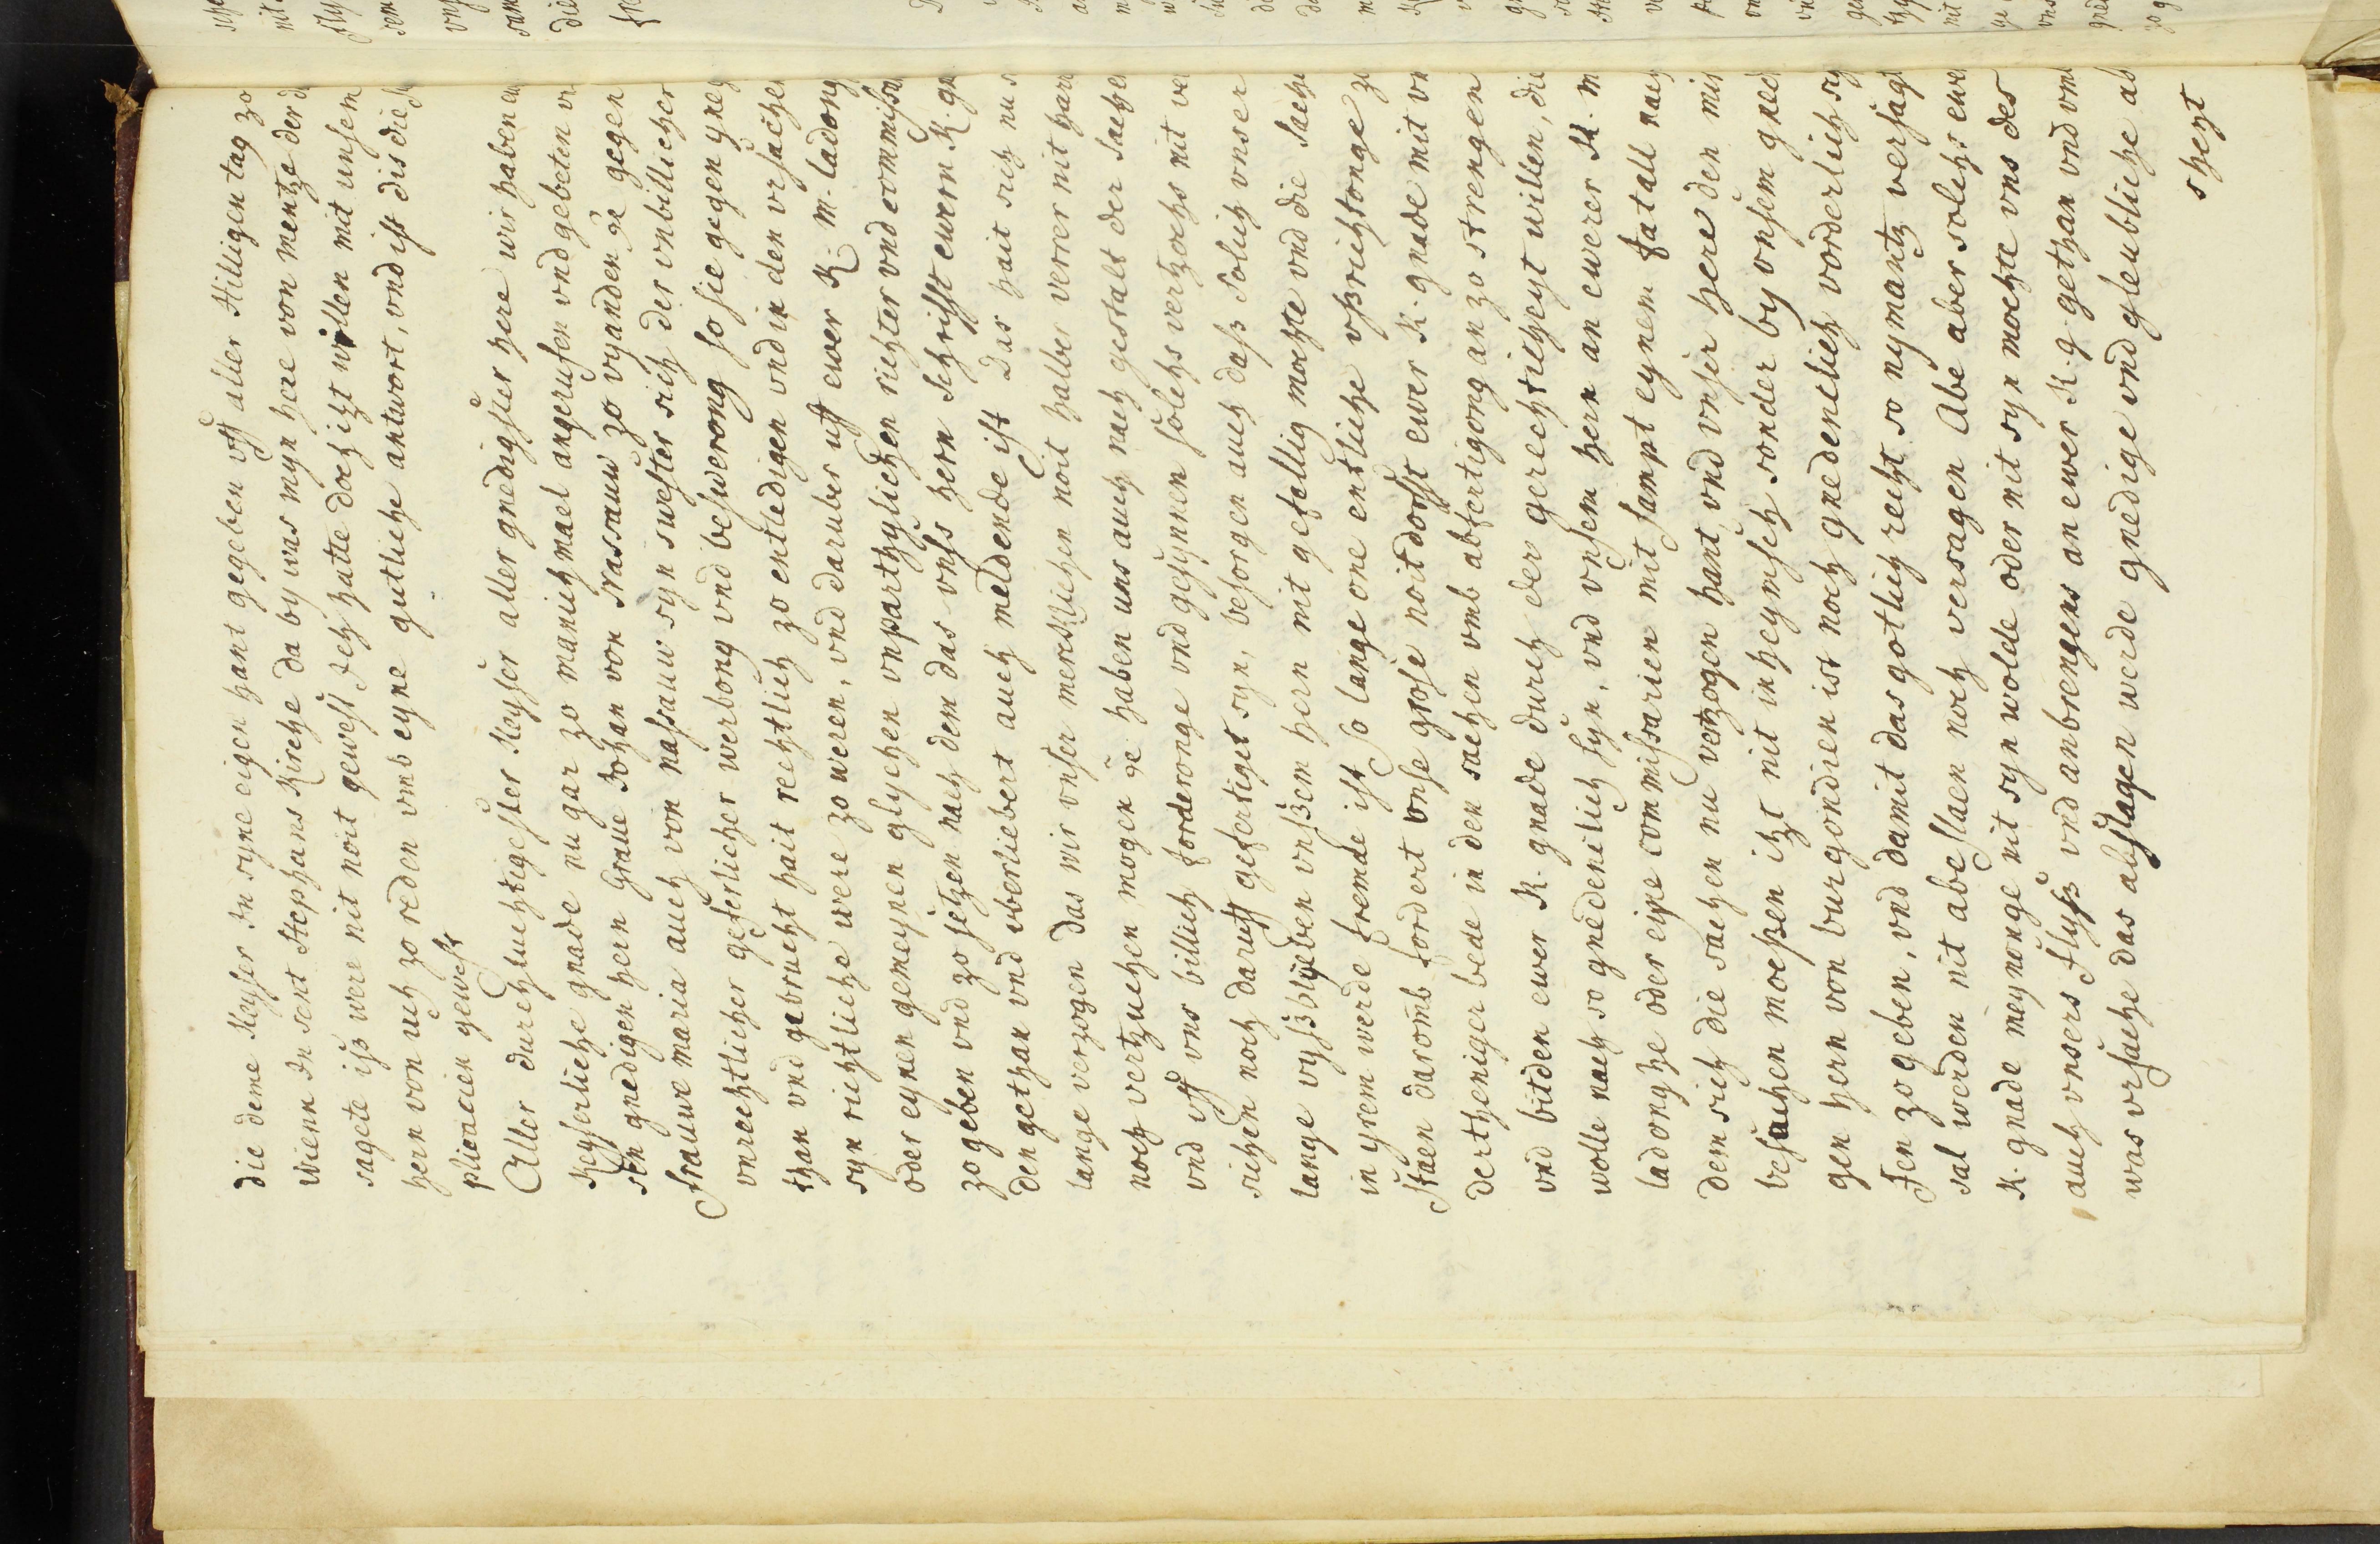 die deme Keyser In syne eigen hant gegeben vff aller Hilligen tag zo
wienn In sent Stephans Kirche da by was myn here von mentze der
sagete iß were nit noit gewest Ich hatte doch izt willen mit unsem
hern von uch zo reden vmb eyne gutliche antwort, vnd ist dis die
plicacien gewest
Aller durchluchtigester Keyser aller gnedigster here wir haben
keyserliche gnade nu gar zo manichmael angerufen vnd gebeten
den gnedigen hern Graue Johan von nassauw zo vyanden ꝛc gegen
frauwe maria auch von nassauw syn swester sich der vnbillicher
vnrechtlicher geferlicher werbong vnd beswerong so sie gegen yne
than vnd gebrucht hait rechtlich zo entledigen vnd in den vrsachen
syn richtliche were zo weren, vnd daruber uff ewer K. M. ladong
oder eynen gemeynen glychen vnparthylichen richter vnd commissa
zo geben vnd zo setzen nach dem das vnss hern schrifft ewern K. gn
den gethan vnd vberliebert auch meldende ist Das hait sich nu
lange verzogen das wir vnser mercklichen noit halber verrer nit
noch vertzuchen mogen ꝛc haben uns auch nach gestalt der sachen
vnd vff vns billich forderonge vnd gesynnen solchs vertzochs nit
sichen noch daruff gefertiget syn, besorgen auch daß solich vnser
lange vyßblyeben vnßem hern nit gefellig mochte vnd die sach
in yrem werde fremde ist so lange one entliche vßrichtonge
staen daromb fordert vnse grose noitdorfft ewer K. gnade mit
vertheniger bede in den sachen vmb abfertigong an zo strengen
vnd bitden ewer K. gnade durch der gerechticheyt willen, die
wolle nach so gnedenclich syn, vnd vnsem hern an ewerer K. M
ladonghe oder eyne commissarien mit sampt eynem fatall
dem sich die sachen nu vertzogen hant, vnd vnser here den
besachen moeßen itzt nit inheymsch sonder by vnsem
gen hern von burgondien ist noch gnedenclich vorderlich
Jen zo geben, vnd damit das gotlich recht so nymantz versagt
sal werden nit abeslaen noch versagen Abe aber solchs
K. gnade meynonge nit syn wolde oder nit syn mochte vns des
auch vnsers flyß vnd anbrengens an ewer K. g. gethan vnd
was vrsache das abslagen werde gnedige vnd gleubliche